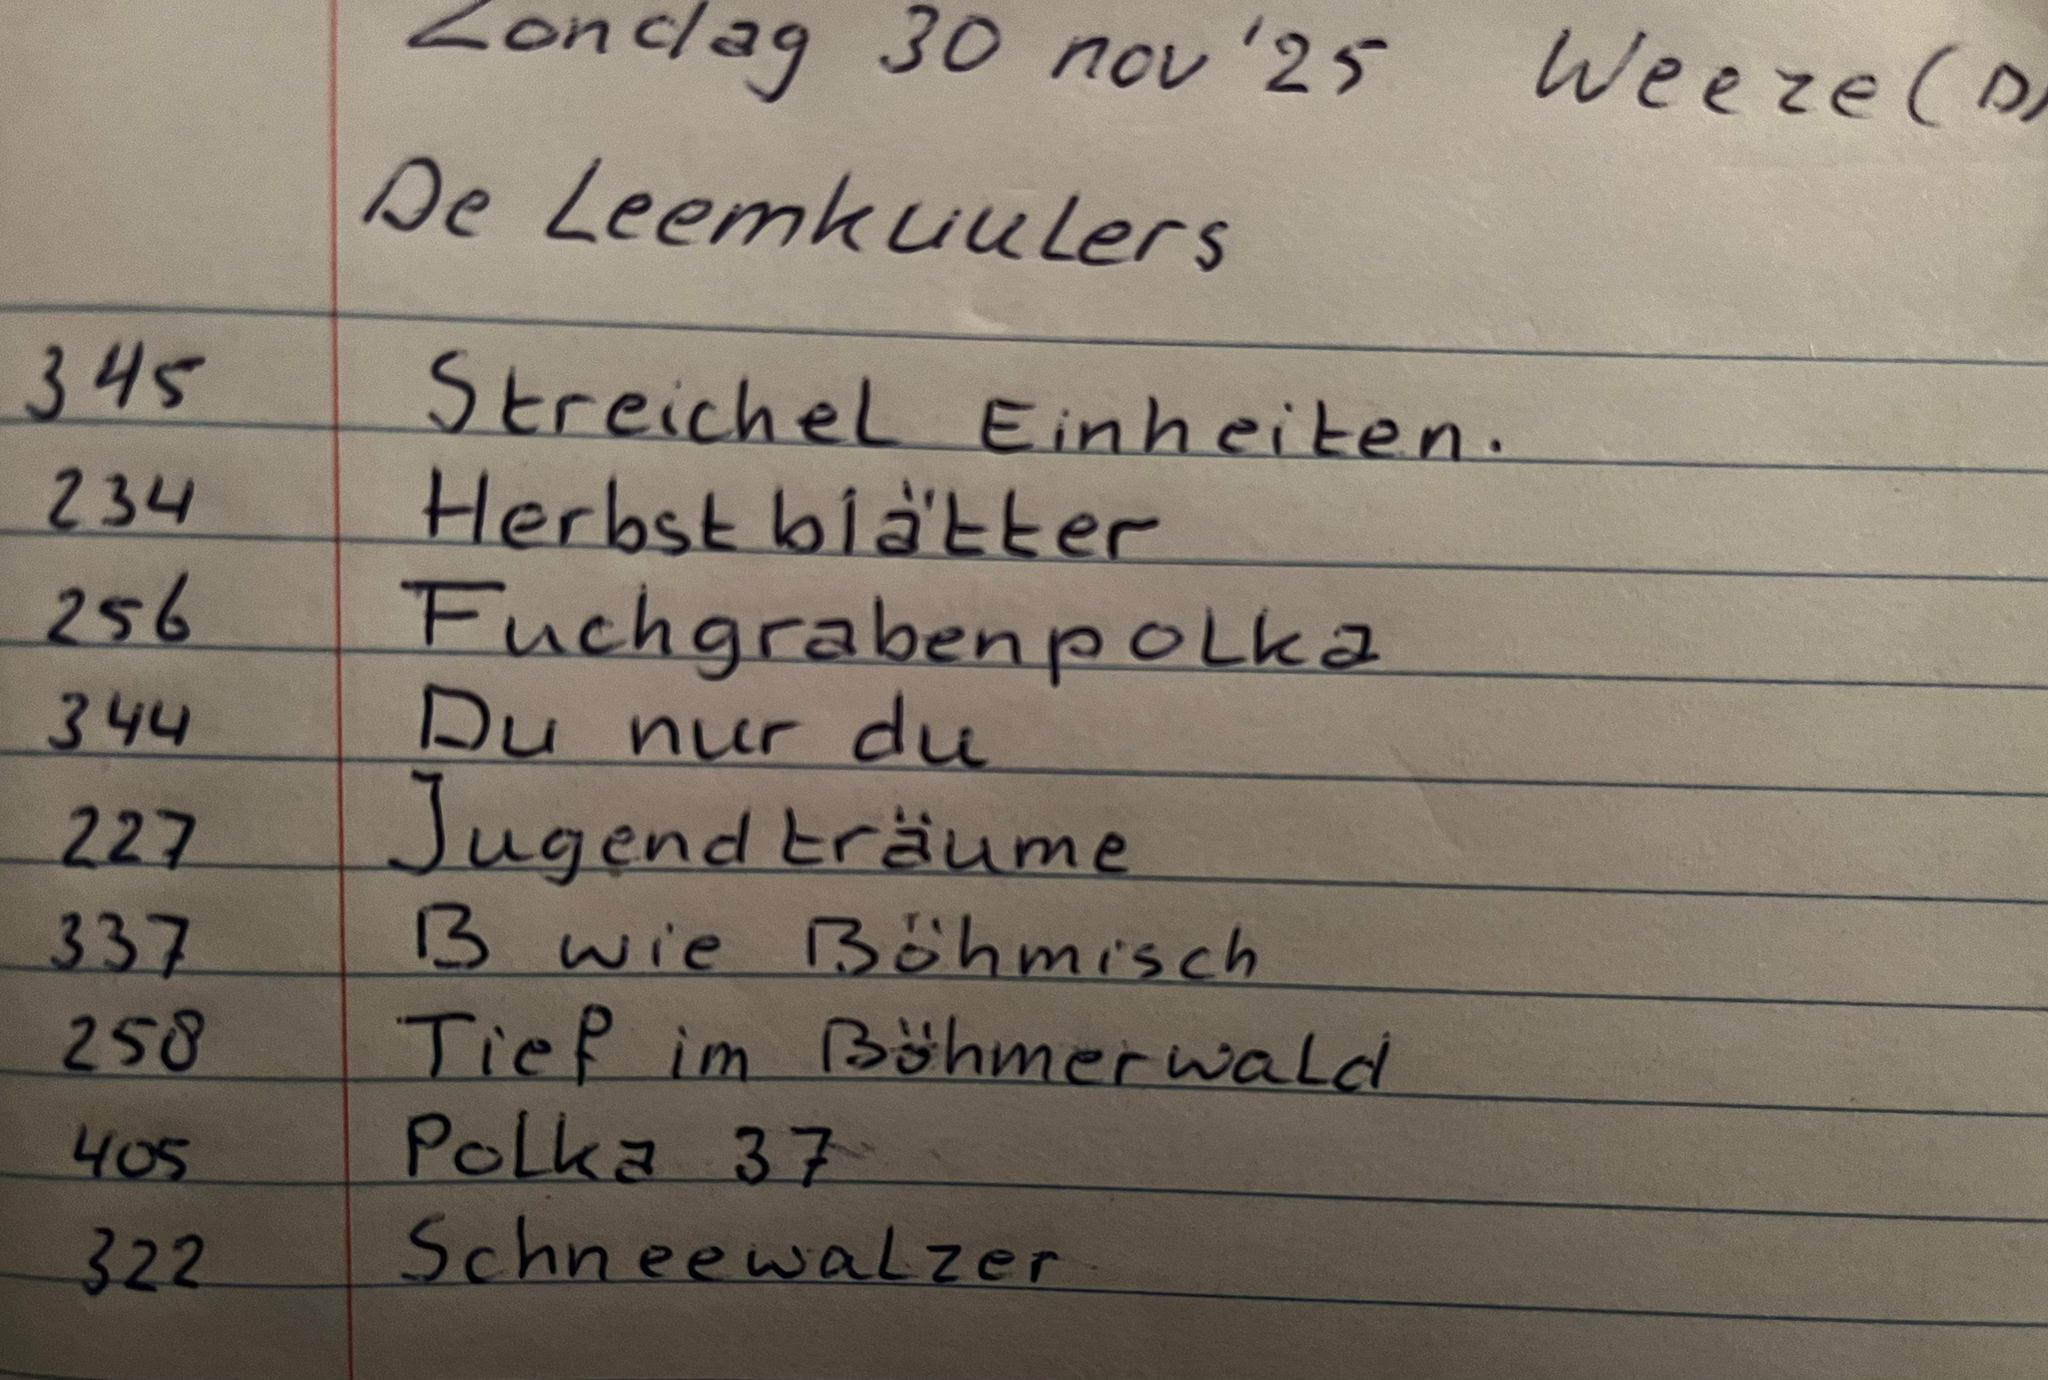 Zondag 30 nov '25 Weeze (D)
De Leemkuulers
345 Streichel Einheiten.
234 Herbstblätter
256 Fuchgrabenpolka
344 Du nur du
227 Jugendträume
337 B wie Böhmisch
258 Tief im Böhmerwald
405 Polka 37
322 Schneewalzer